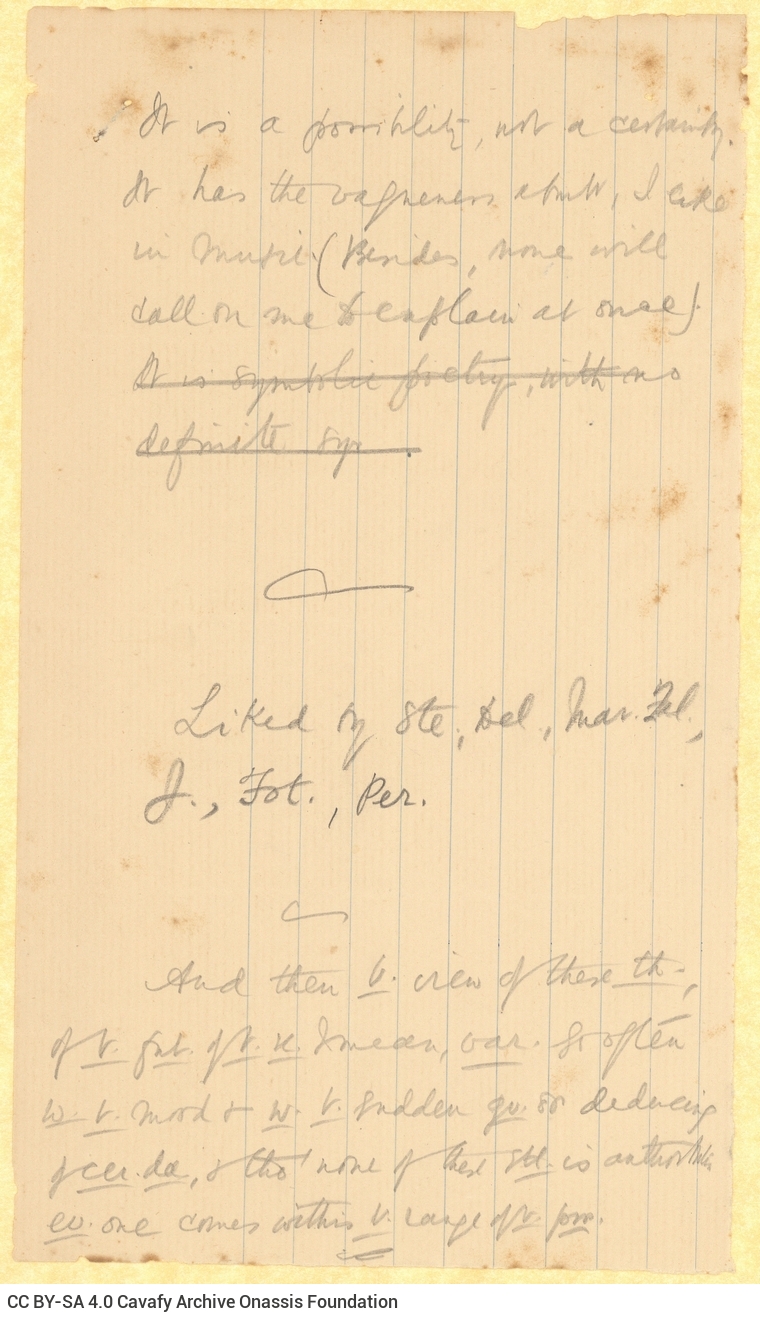 It is a possibility, not a certainty.
It has the vagueness about it, I like
in Music. (Besides, none will
call on me to explain at once).
It is symbolic poetry, with no
definite sy
Liked by Ste, Del, Mar. Zal,
J., Fot., Per.
And then t. view of these th-,
of t. fut. of t. u. I mean, var. so often
w. t. mood & w. t. sudden qu. or deducing
of cer. da, & tho' none of these stt. is authoritative
ev. one comes within t. range of t. pos.
CC BY-SA 4.0 Cavafy Archive Onassis Foundation